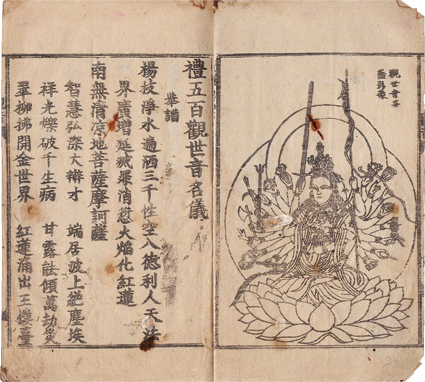 觀世音菩
禮五百觀世音名儀
楊枝淨水遍洒三千性空八德利人天法
界廣增延滅罪消愆火焰化紅蓮
南無清凉地菩薩摩訶薩
智慧弘深大辯才 端居波上絕塵埃
祥光爍破千生病 甘露能傾萬劫災
翠柳拂開金世界 紅蓮涌出玉樓臺